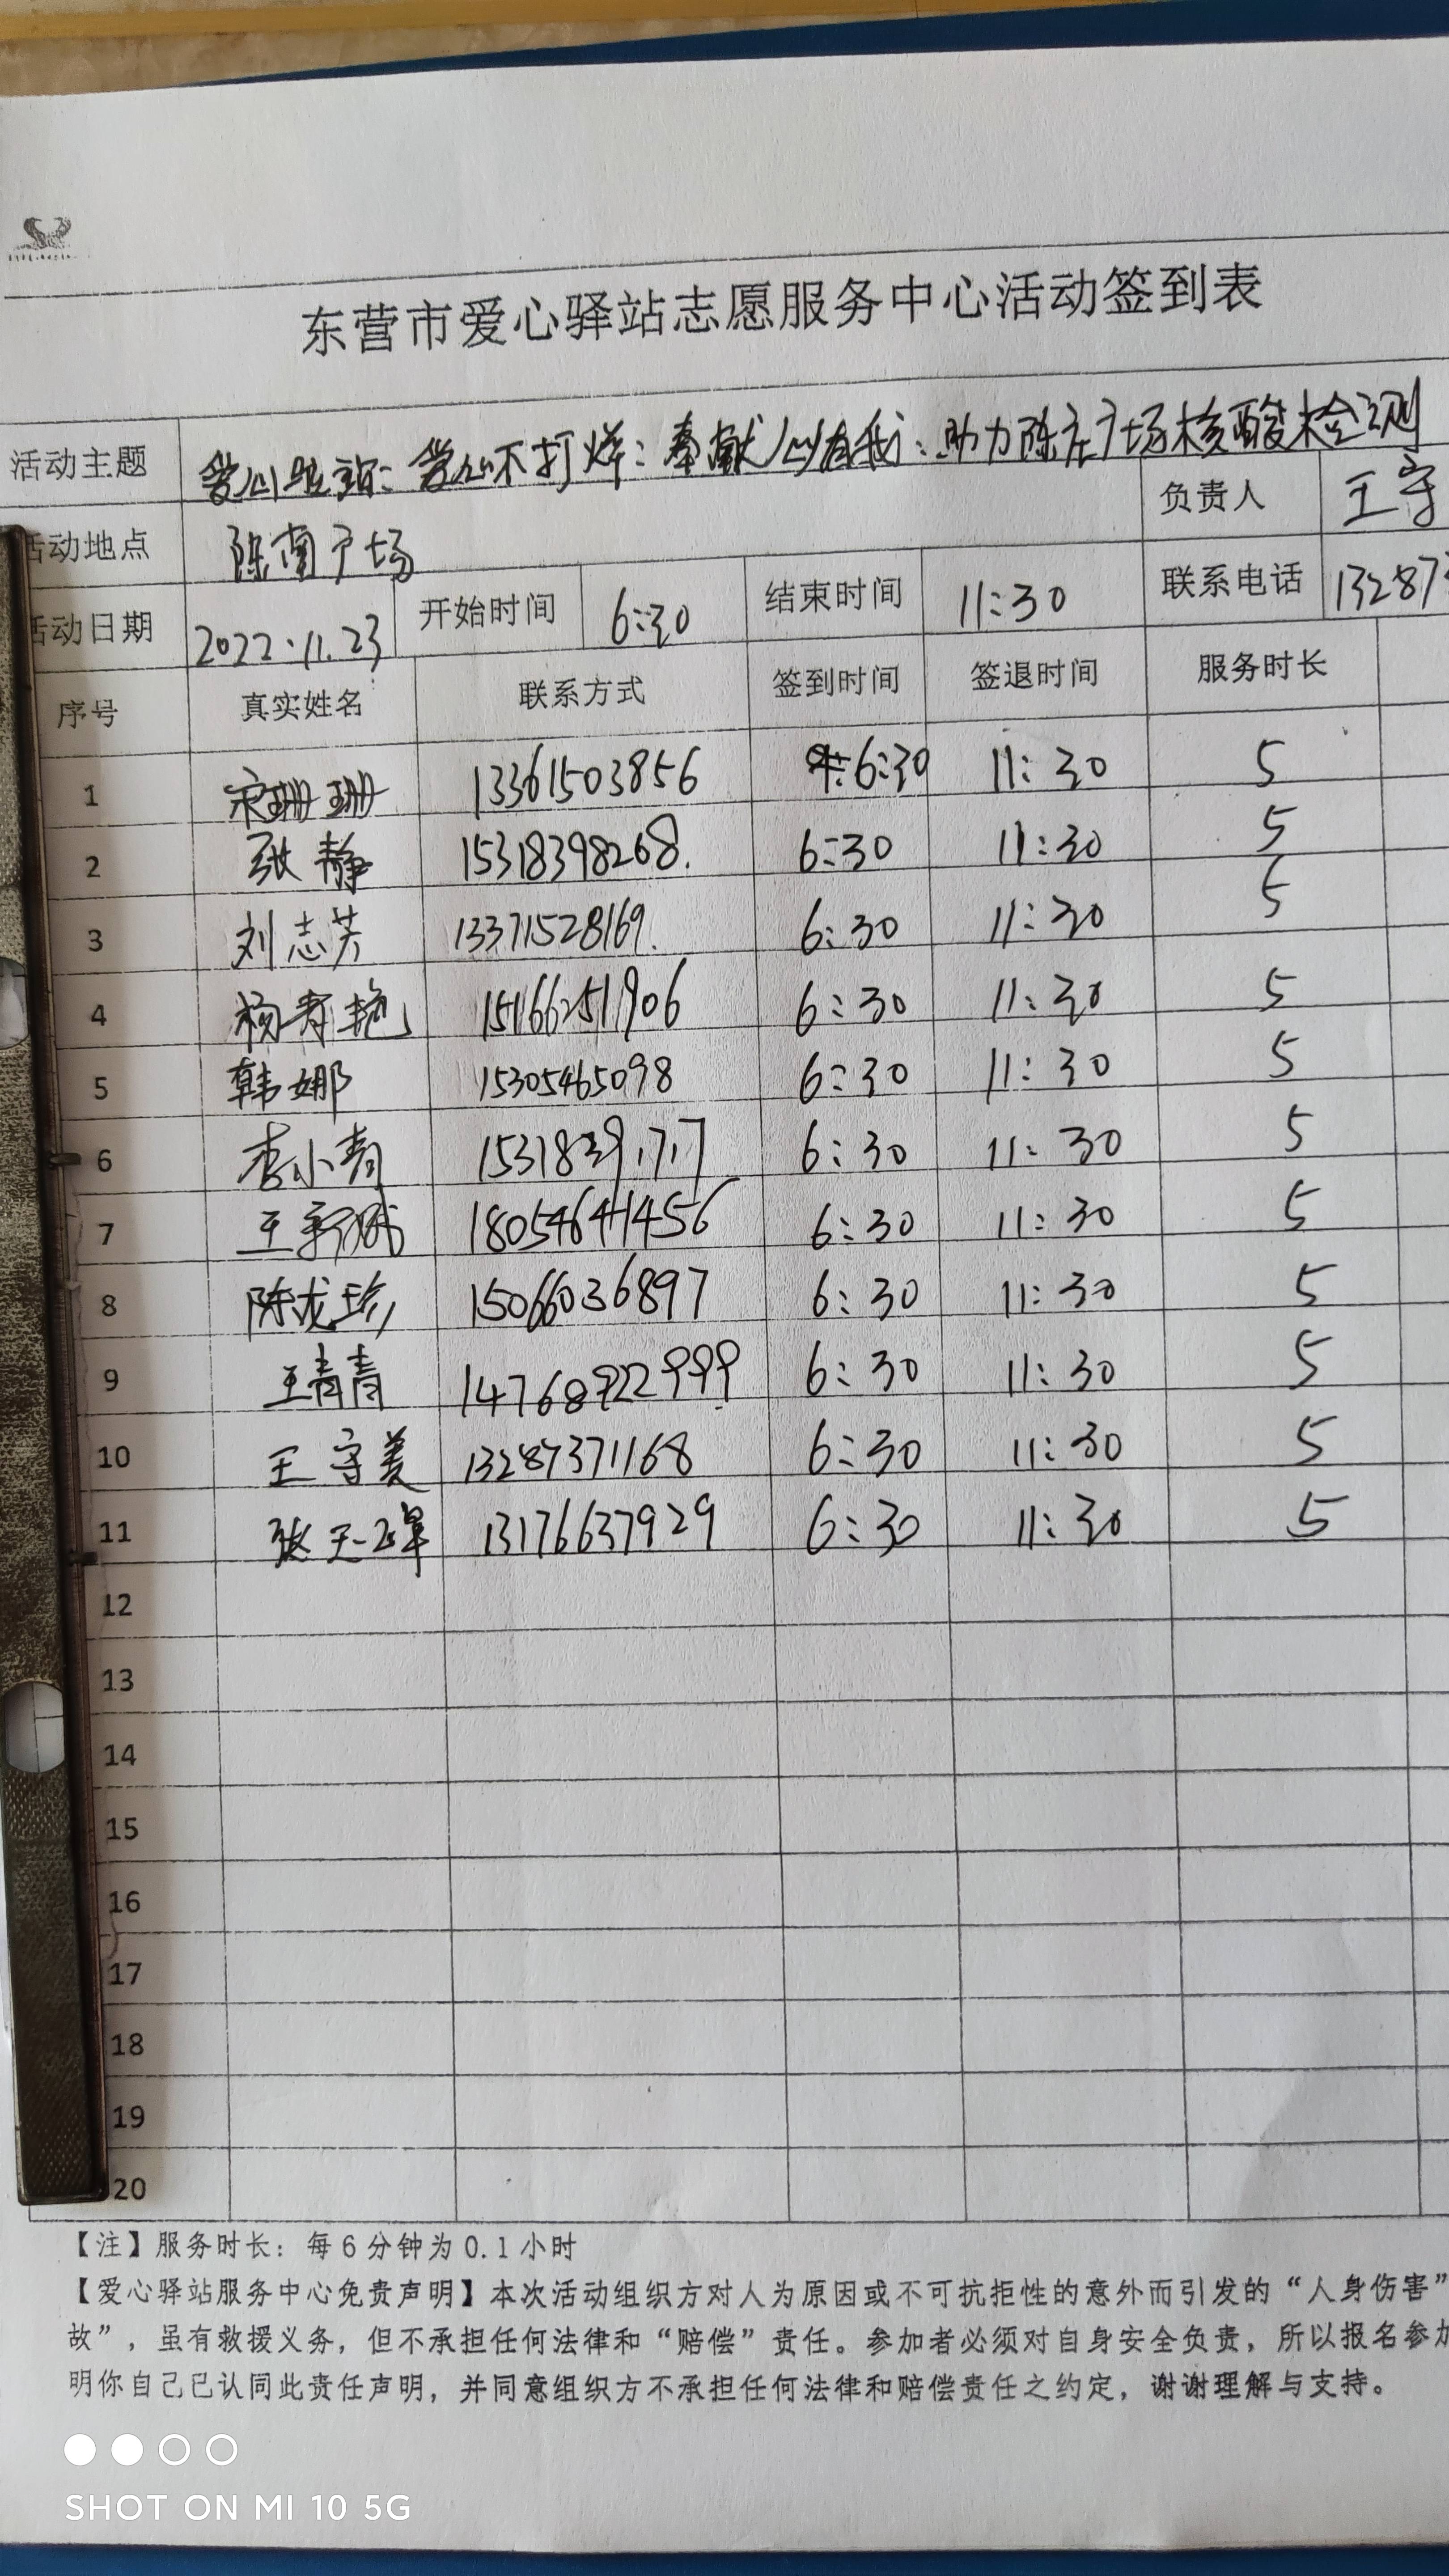 东营市爱心驿站志愿服务中心活动签到表
活动主题 爱心驿站：爱心不打烊：奉献必有我：助力陈庄广场核酸检测
活动地点 陈南广场 负责人 王守
活动日期 2022.11.23 开始时间 6:30 结束时间 11:30 联系电话 13287
序号 真实姓名 联系方式 签到时间 签退时间 服务时长
1 宋珊珊 13361503856 6:30 11:30 5
2 张静 15318398268. 6:30 11:30 5
3 刘志芳 13371528169. 6:30 11:30 5
4 杨寿艳 15166251906 6:30 11:30 5
5 韩娜 15305465098 6:30 11:30 5
6 李小青 15318391717 6:30 11:30 5
7 王新 18054641456 6:30 11:30 5
8 陈龙珍 15066036897 6:30 11:30 5
9 王青青 14768922999 6:30 11:30 5
10 王守美 13287371168 6:30 11:30 5
11 张天 13176637929 6:30 11:30 5
12
13
14
15
16
17
18
19
20
【注】服务时长：每6分钟为0.1小时
【爱心驿站服务中心免责声明】本次活动组织方对人为原因或不可抗拒性的意外而引发的“人身伤害”
故”，虽有救援义务，但不承担任何法律和“赔偿”责任。参加者必须对自身安全负责，所以报名参加
明你自己已认同此责任声明，并同意组织方不承担任何法律和赔偿责任之约定，谢谢理解与支持。
SHOT ON MI 10 5G